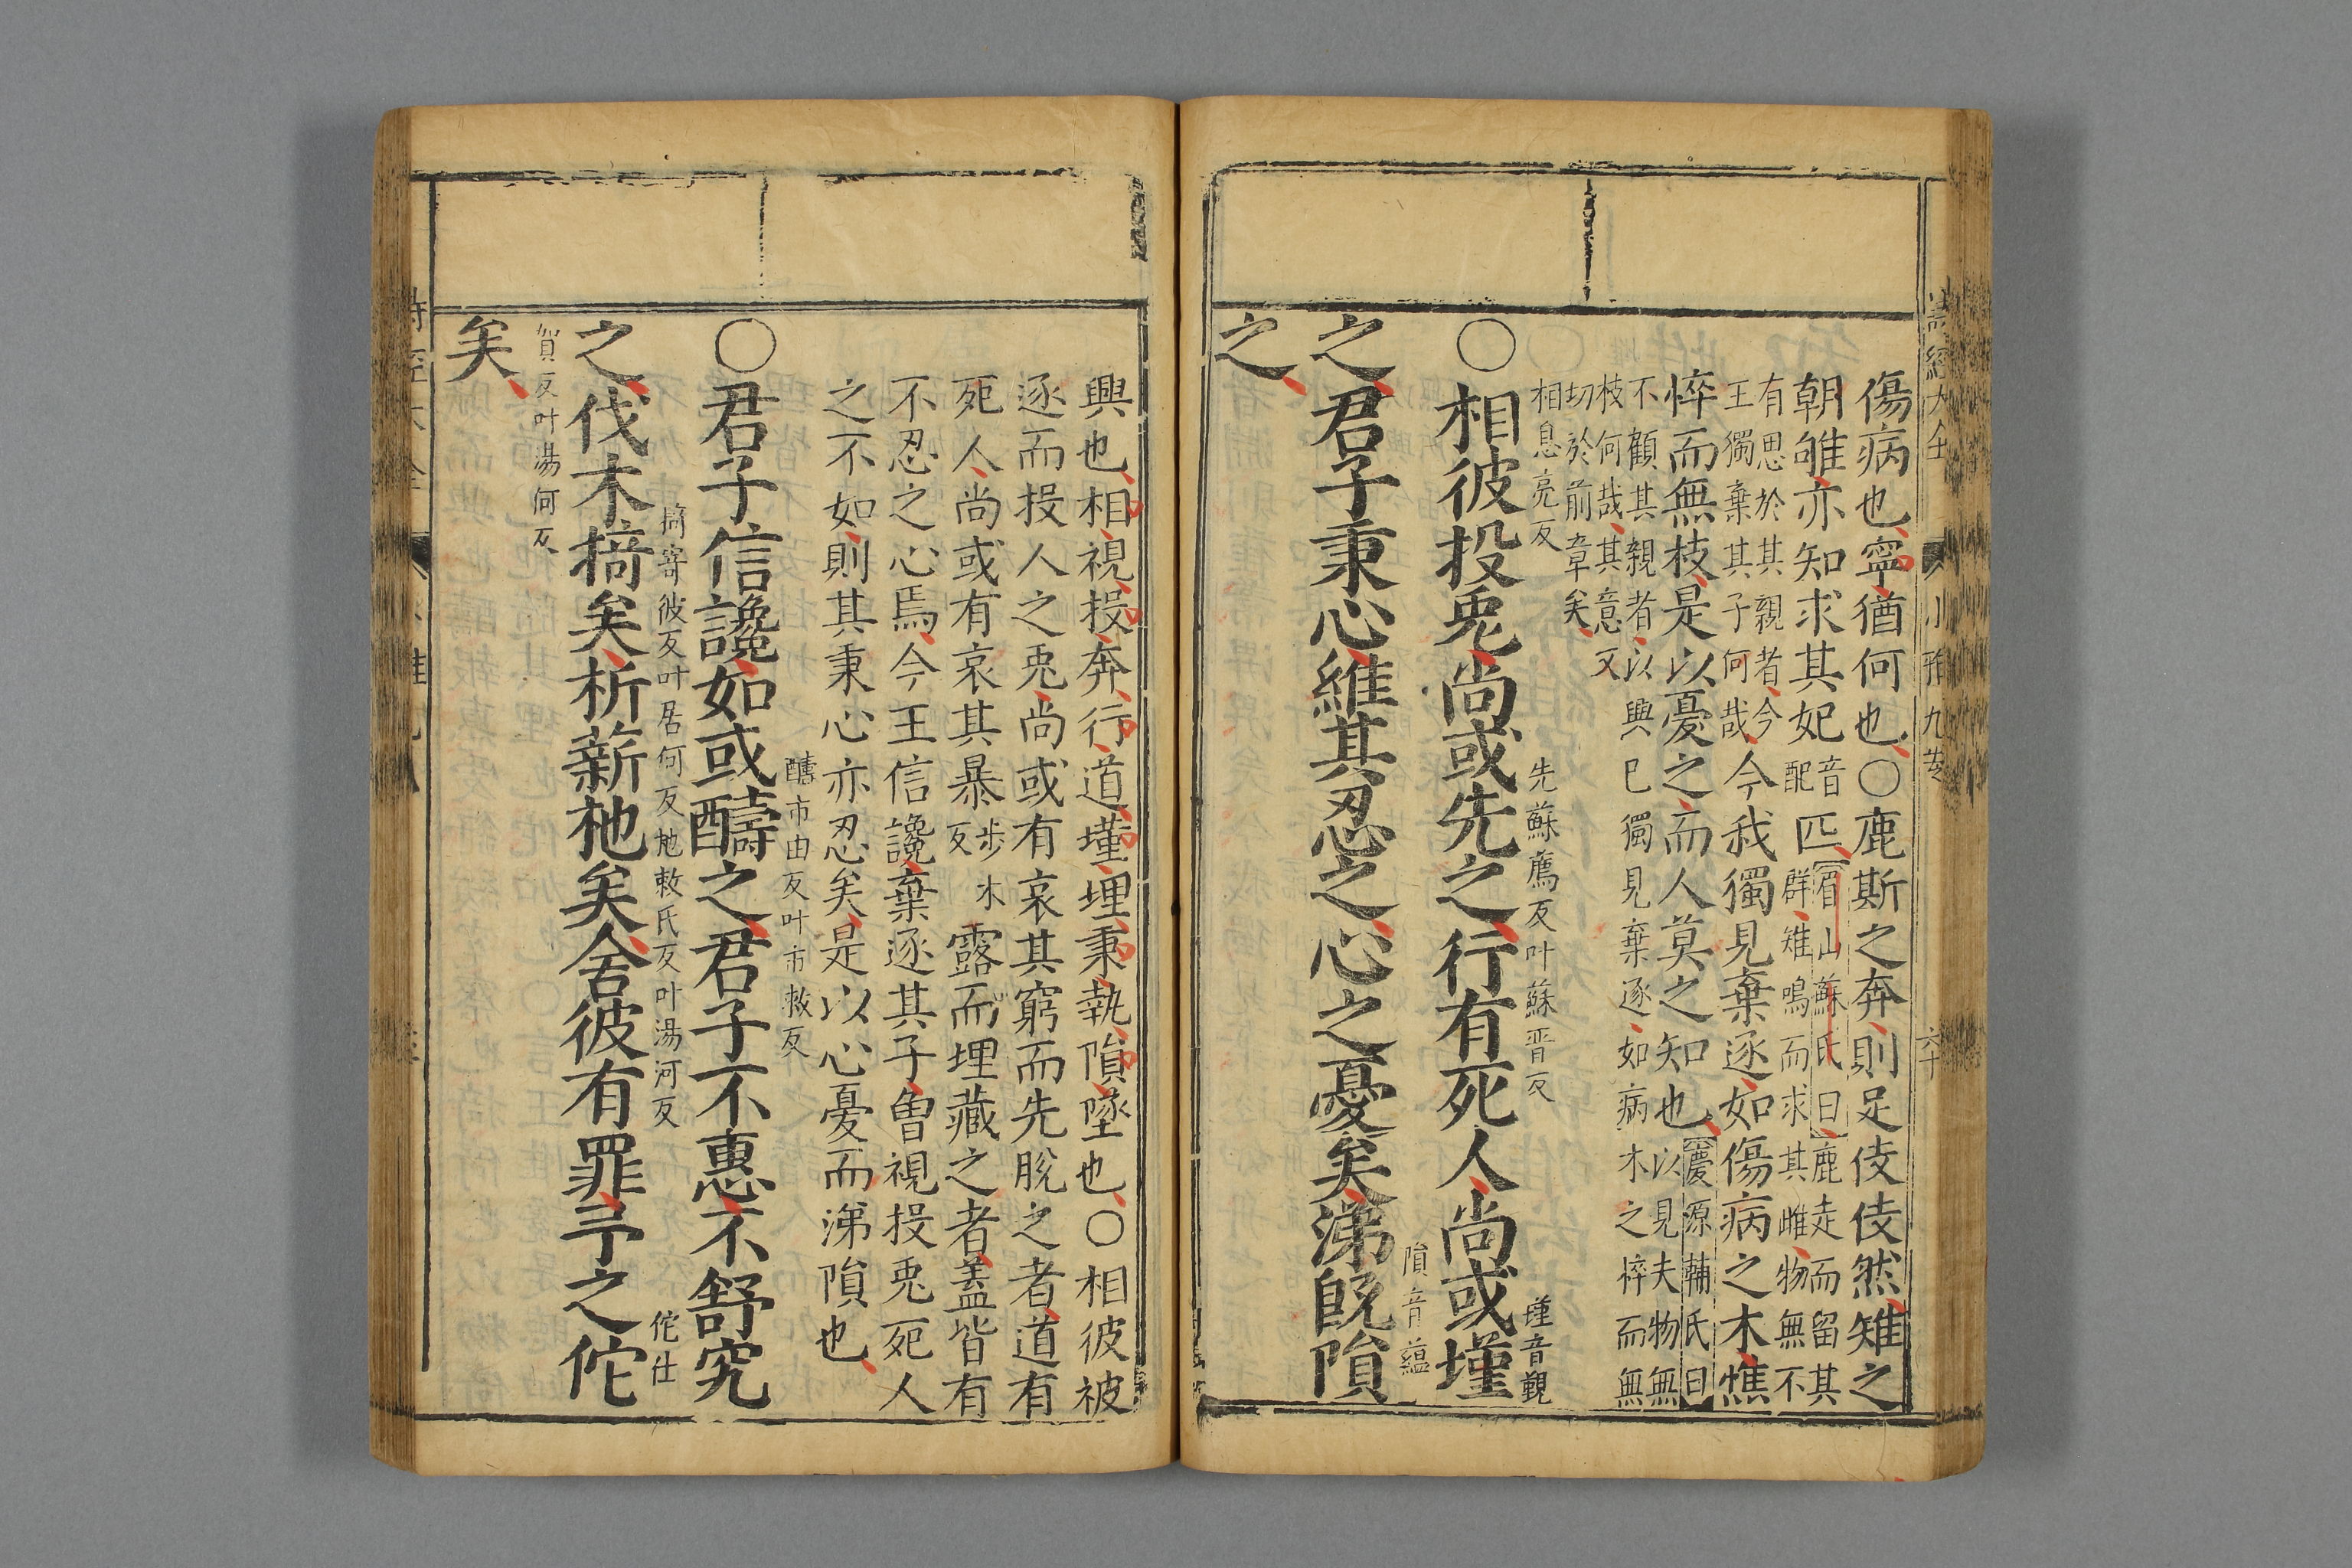 傷病也寧猶何也〇鹿斯之奔則足伎伎然雉之
朝雊亦知求其妃音配匹眉山蘇氏曰鹿走而留其群雉鳴而求其雌物無不
有思於其親者今王獨棄其子何哉今我獨見棄逐如傷病之木憔
悴而無枝是以憂之而人莫之知也慶源輔氏曰以見夫物無
不顧其親者以興己獨見棄逐如病木之悴而無
枝何哉其意又
切於前章矣
相息亮反 先蘇薦反叶蘇晉反 墐音覲
〇相彼投兎尚或先之行有死人尚或墐
隕音蘊
之君子秉心維其忍之心之憂矣涕旣隕
之
興也相視投奔行道墐埋秉執隕墜也〇相彼被
逐而投人之兎尚或有哀其窮而先脫之者道有
死人尚或有哀其暴步木反露而埋藏之者蓋皆有
不忍之心焉今王信讒棄逐其子曾視投兎死人
之不如則其秉心亦忍矣是以心憂而涕隕也
醻市由反叶市救反
〇君子信讒如或醻之君子不惠不舒究
掎寄彼反叶居何反杝敕氏反叶湯河反 佗仕
之伐木掎矣析薪杝矣舍彼有罪予之佗
賀反叶湯何反
矣